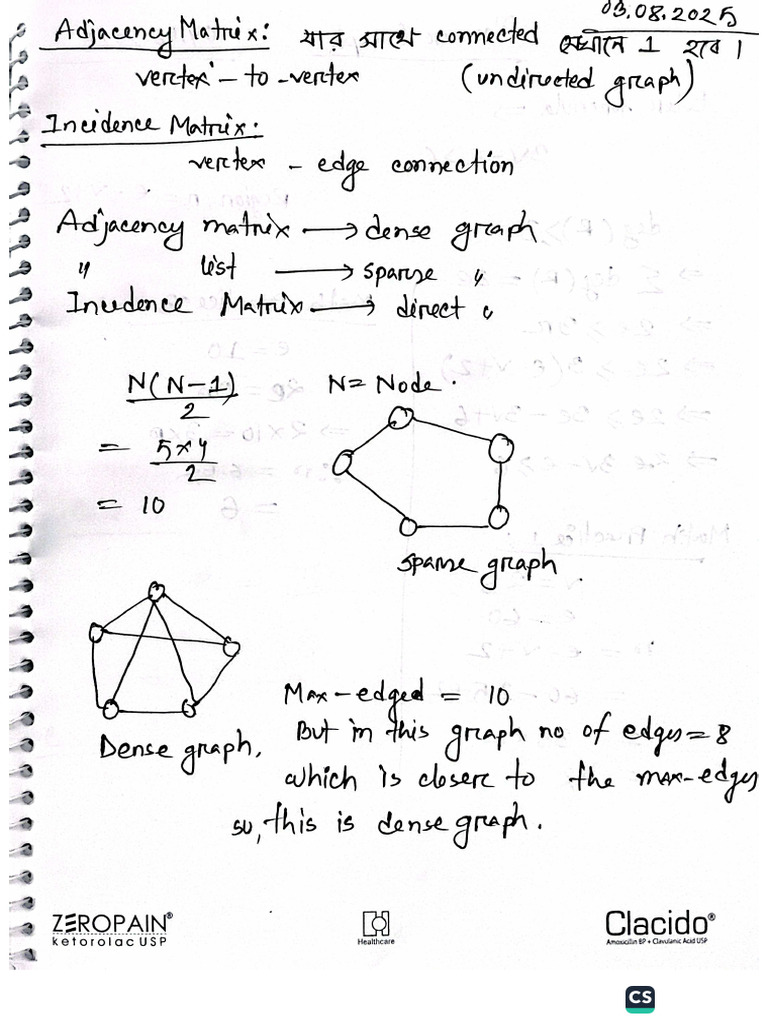 03.08.2025
Adjacency Matrix: যার সাথে connected সেখানে 1 হবে।
vertex - to - vertex (undirected graph)
Incidence Matrix:
vertex - edge connection
Adjacency matrix → dense graph
" list → sparse "
Incidence Matrix → direct "
N(N-1)/2 N = Node.
= 5×4/2
= 10
sparse graph
Max-edged = 10
Dense graph, But in this graph no of edges = 8
which is closer to the max-edges
so, this is dense graph.
ZEROPAIN®
ketorolac USP
Healthcare
Clacido®
Amoxicillin BP + Clavulanic Acid USP
CS